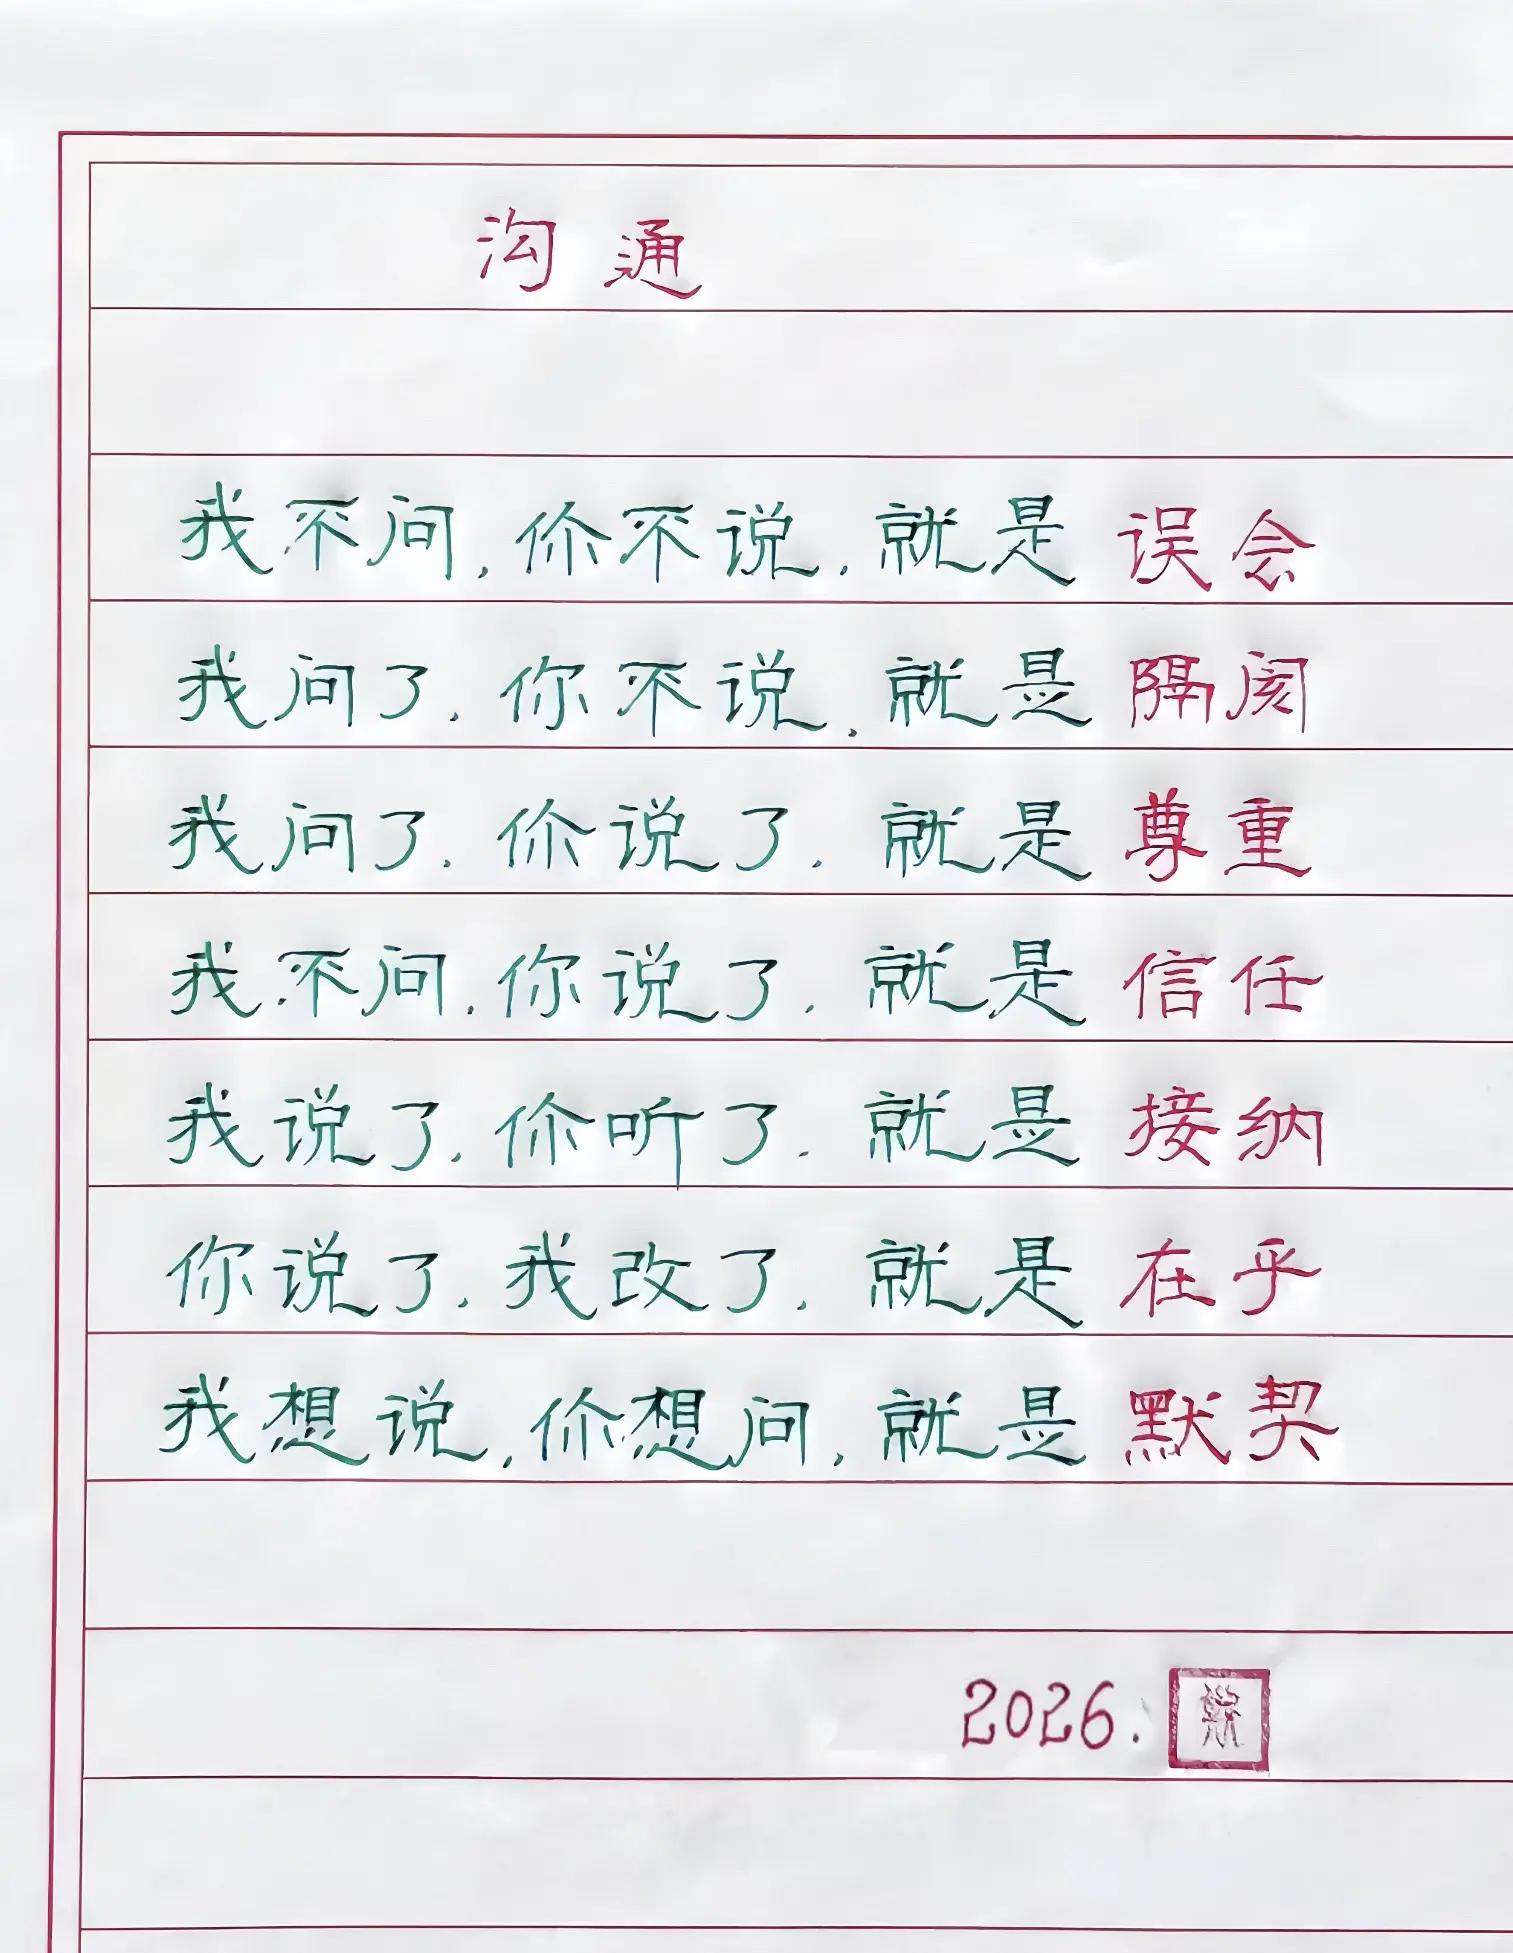 沟通
我不问,你不说,就是误会
我问了,你不说,就是隔阂
我问了,你说了,就是尊重
我不问,你说了,就是信任
我说了,你听了,就是接纳
你说了,我改了,就是在乎
我想说,你想问,就是默契
2026.